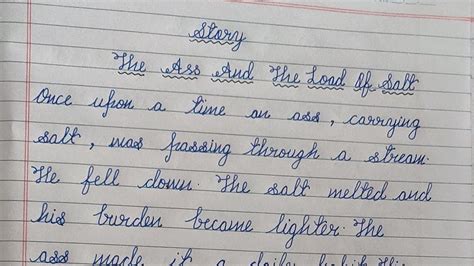 Story
The Ass And The Load Of Salt
Once upon a time an ass, carrying
salt, was passing through a stream.
He fell down. The salt melted and
his burden became lighter. The
ass made it a daily habit. His